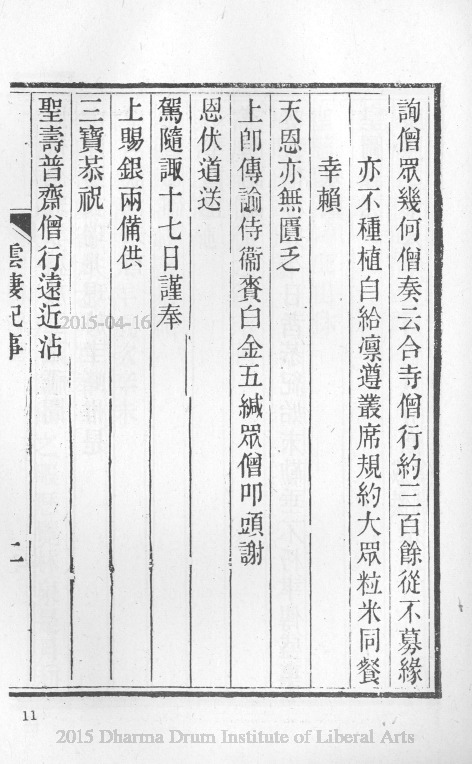 詢僧眾幾何僧奏云合寺僧行約三百餘從不募緣
亦不種植自給凛遵叢席規約大眾粒米同餐
幸賴
天恩亦無匱乏
上卽傳諭侍衞賫白金五緘眾僧叩頭謝
恩伏道送
駕隨諏十七日謹奉
上賜銀兩備供
三寶恭祝
聖壽普齋僧行遠近沾
雲棲紀事
二
2015-04-16
11
2015 Dharma Drum Institute of Liberal Arts